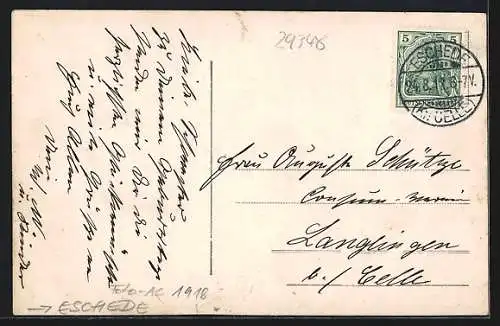 29346
5 5
ESCHEDE
24.8.11.6-7V.
(Kr. CELLE)
Liebe Schwester
zu Deinem Geburtstag
sende wir Dir die
herzlichsten Glückwünsche
u. viele Grüße an
Euch Allen
Frau Auguste Schütze
Consum-Verein
Langlingen
b/ Celle
Foto-AK 1918
→ ESCHEDE